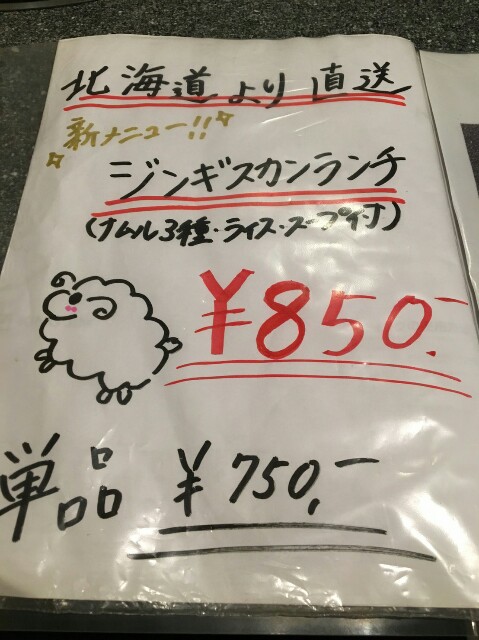 北海道より直送
新メニュー!!
ジンギスカンランチ
(ナムル3種・ライス・スープ付)
¥850.-
単品 ¥750.-